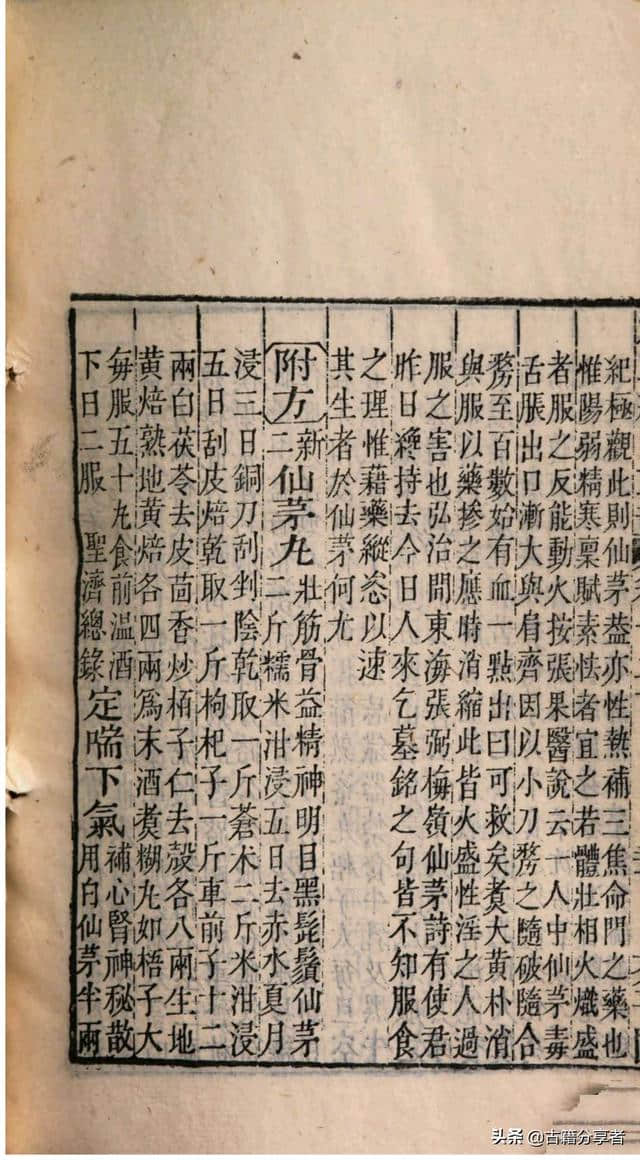 紀極觀此則仙茅蓋亦性熱補三焦命門之藥也
惟陽弱精寒稟賦素怯者宜之若體壯相火熾盛
者服之反能動火按張果醫說云一人中仙茅毒
舌脹出口漸大與肩齊因以小刀剺之隨破隨合
剺至百數始有血一點出曰可救矣煑大黃朴消
與服以藥摻之應時消縮此皆火盛性淫之人過
服之害也弘治間東海張弼梅嶺仙茅詩有使君
昨日纔持去今日人來乞墓銘之句皆不知服食
之理惟藉藥縱恣以速
其生者於仙茅何尤
附方新二仙茅丸壯筋骨益精神明目黑髭鬚仙茅
二斤糯米泔浸五日去赤水夏月
浸三日銅刀刮剉陰乾取一斤蒼术二斤米泔浸
五日刮皮焙乾取一斤枸杞子一斤車前子十二
兩白茯苓去皮茴香炒栢子仁去殼各八兩生地
黃焙熟地黃焙各四兩爲末酒煑糊丸如梧子大
每服五十丸食前温酒
下日二服 聖濟總錄
定喘下氣補心腎神秘散
用白仙茅半兩
头条 @古籍分享者